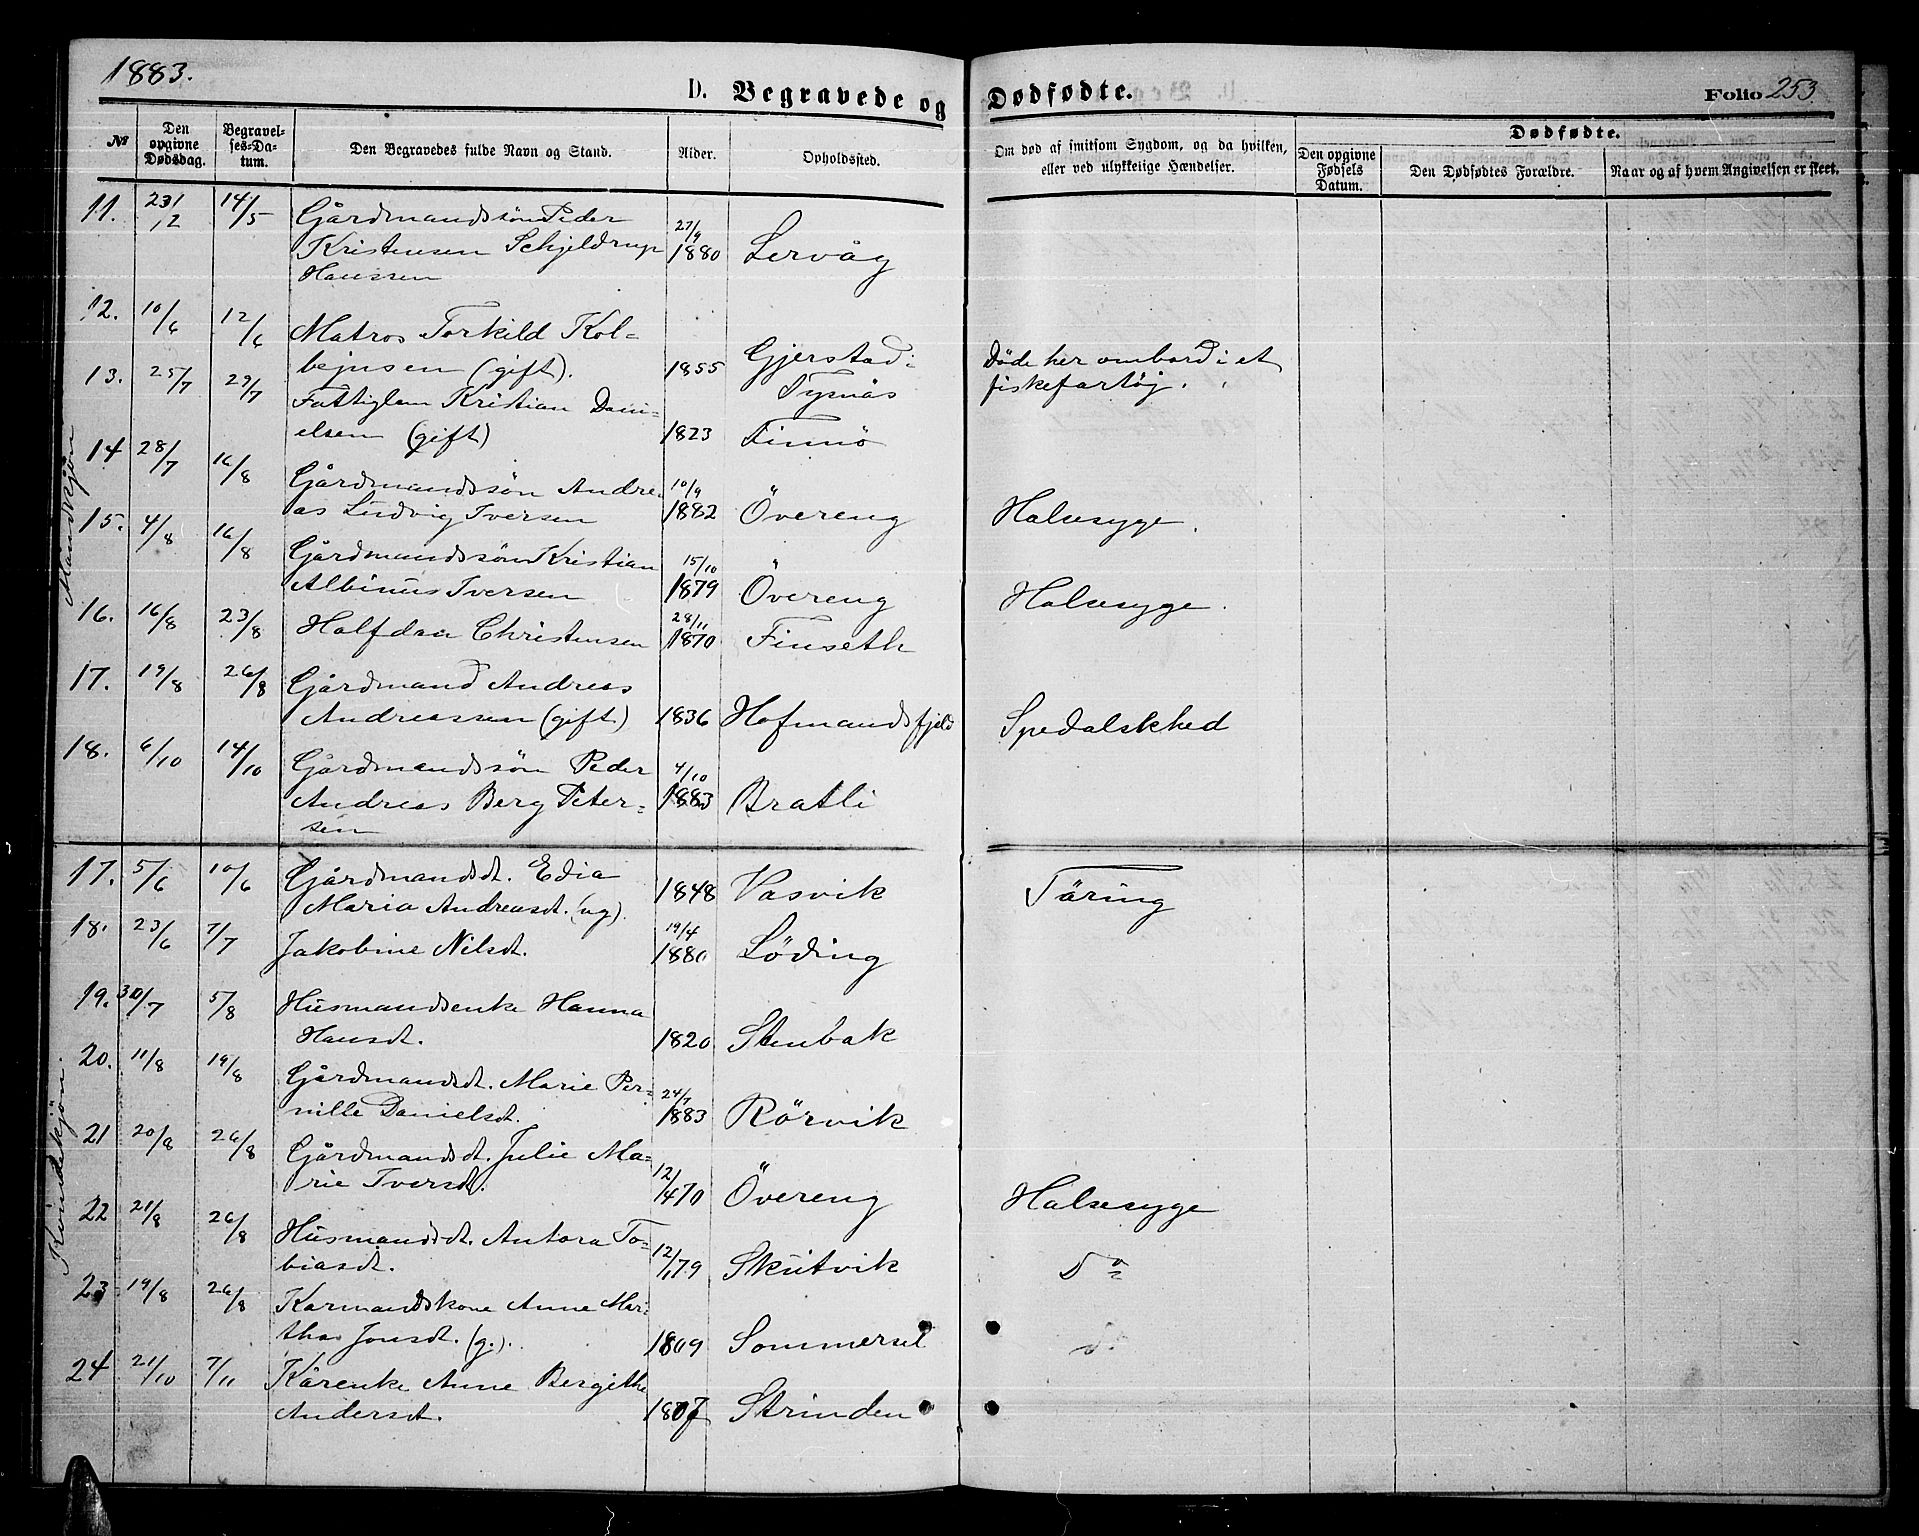 1883.
D. Begravede og Dødfødte.
Folio 253
№
Den opgivne Dødsdag.
Begravelses-Datum.
Den Begravedes fulde Navn og Stand.
Alder.
Opholdssted.
Om død af smitsom Sygdom, og da hvilken,
eller ved ulykkelige Hændelser.
Dødfødte.
Den opgivne Fødsels Datum.
Den Dødfødtes Forældre.
Naar og af hvem Angivelsen er skeet.
Mandkjön
11. 23/12 14/5 Gårdmandssøn Peder 27/9
Kristensen Schjeldrup 1880 Lervåg
Hanssen
12. 10/6 12/6 Matros Torkild Kol-
bejnsen (gift). 1855 Gjerstad i Døde her ombord i et
Tysnäs fiskefartöj.
13. 25/7 29/7 Fattiglem Kristian Dani-
elsen (gift) 1823 Finnö
14 28/7 16/8 Gårdmandssøn Andre- 10/9
as Ludvig Iversen 1882 Övereng Halsesyge.
15. 4/8 16/8 Gårdmandssøn Kristian 15/10
Albinus Iversen 1879 Övereng Halsesyge.
16. 16/8 23/8 Halfdan Christensen 28/11 1870 Finseth
17. 19/8 26/8 Gårdmand Andreas
Andreassen (gift) 1836 Hofmandsfjeld Spedalskhed
18. 6/10 14/10 Gårdmandssøn Peder 4/10
Andreas Berg Peter- 1883 Bratli
sen
Kvindekjön.
17. 5/6 10/6 Gårdmandsdt. Edia
Maria Andreasdt. (ug). 1848 Vasvik Täring
18. 23/6 7/7 Jakobine Nilsdt. 19/4 1880 Löding
19. 30/7 5/8 Husmandsenke Hanna
Hansdt. 1820 Stenbak
20. 11/8 19/8 Gårdmandsdt. Marie Per-
nille Danielsdt. 24/7 1883 Rörvik
21 20/8 26/8 Gårdmandsdt. Julie Ma-
rie Iversdt. 12/4 70 Övereng Halsesyge
22 21/8 26/8 Husmandsdt. Antora To-
biasdt. 12/1 79 Skutvik Do
23 19/8 26/8 Kårmandskone Anne Mar-
tha Jonsdt. (g.). 1809 Sommerset d.
24 21/10 7/11 Kårenke Anne Bergithe
Andersdt. 1807 Strinden